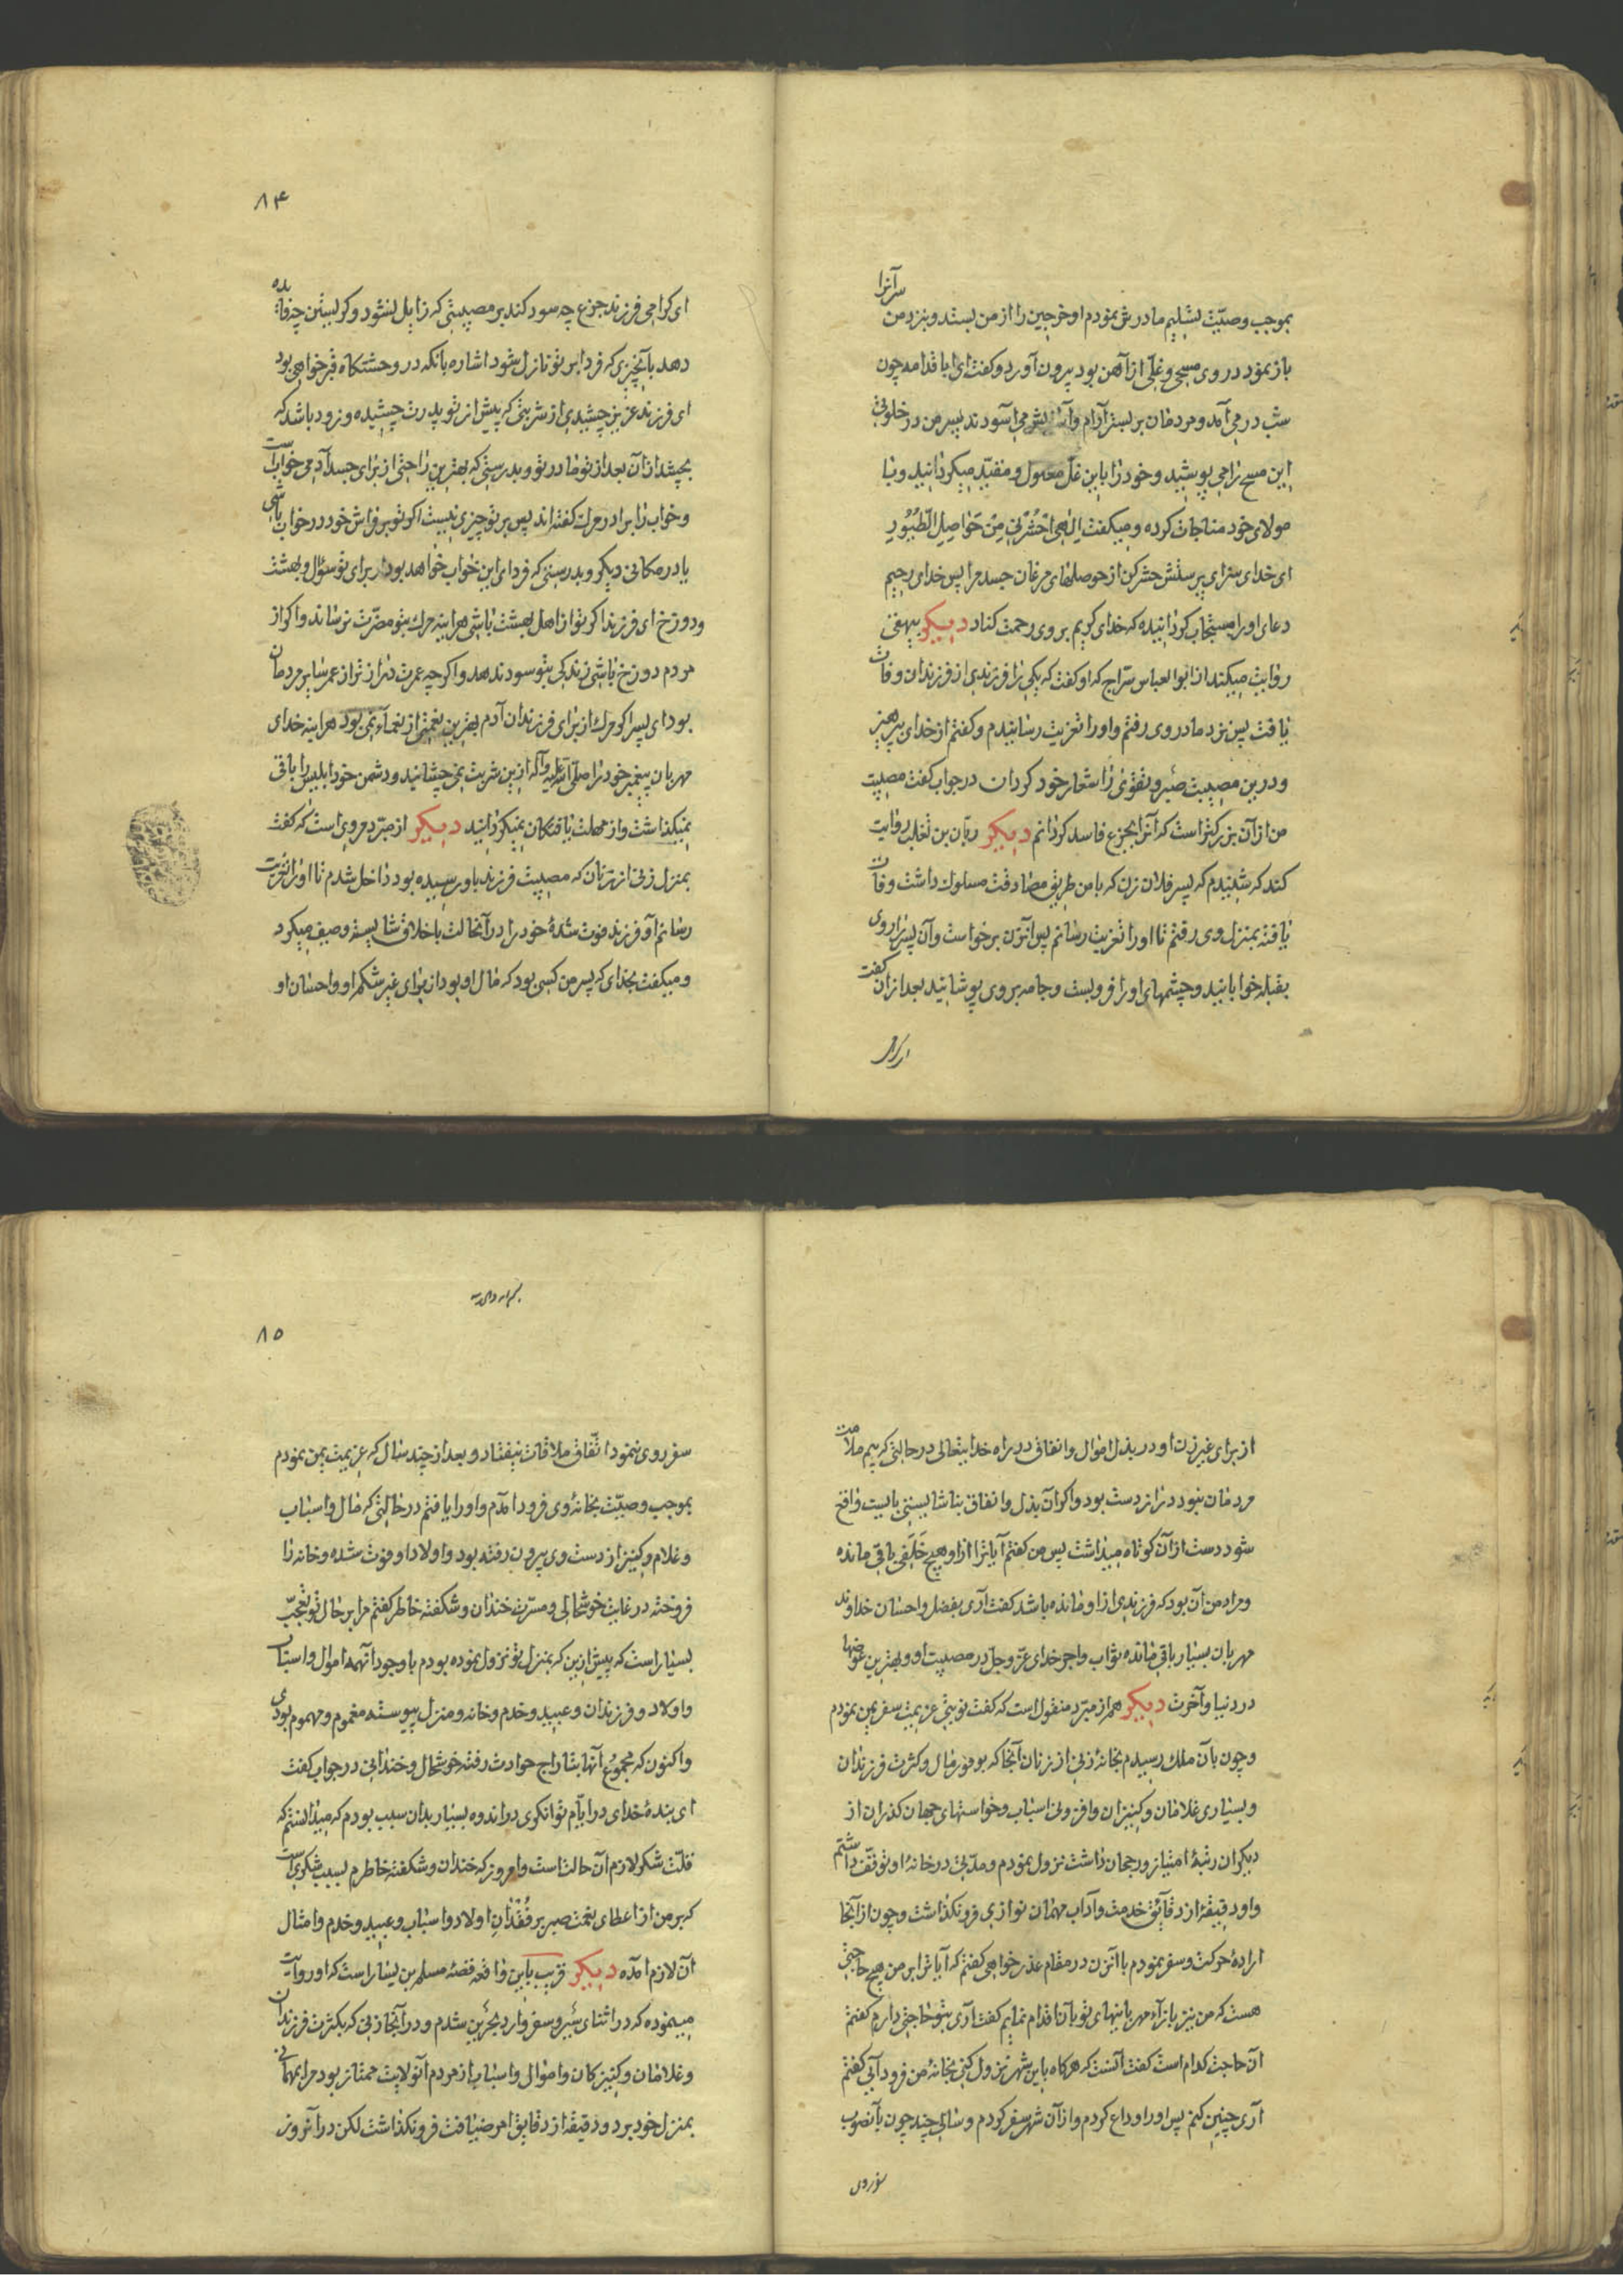 بموجب وصیّت تسلیم مادرش نمودم او خرجین را از من بستد و بنزد من سر آنرا
باز نمود در وی مسحی و غلّی از آهن بود بیرون آورد و کفت ای ابا قدامه چون
شب در می آمد و مردمان بر بستر آرام و آسایش می آسودند پسر من در خلوتی
این مسح را می پوشید و خود را باین غلّ مغلول و مقیّد میکردانید و با
مولای خود مناجات کرده و میکفت الهی احشرنی من حواصل الطّیور
ای خدای سزای پرستش حشر کن از حوصلهای مرغان جسد مرا پس خدای رحیم
دعای او را مستجاب کردانیده که خدای کریم بر وی رحمت کناد دیکر بیهقی
روایت میکند از ابو العباس سرّاج که او کفت که یکی را فرزندی از فرزندان وفات
یافت پس نزد مادر وی رفتم و او را تعزیت رسانیدم و کفتم از خدای بپرهیز
و درین مصیبت صبر و تقوی را شعار خود کردان در جواب کفت مصیبت
من از آن بزرکتر است که آنرا بجزع فاسد کردانم دیکر ربّان بن تغلب روایت
کند که شنیدم که پسر فلان زن که با من طریق مصادقت مسلوک داشت وفات
یافته بمنزل وی رفتم تا او را تعزیت رسانم پس آنزن برخواست و آن پسر را روی
بقبله خوابانید و چشمهای او را فرو بست و جامه بر وی پوشانید بعد از ان کفت
۸۴
ای کرامی فرزند جزع چه سود کند بر مصیبتی که زایل نشود و کریستن چه فایده
دهد بآنچیزی که فردا بر تو نازل شود اشاره بانکه در وحشتکاه قبر خواهی بود
ای فرزند عزیز چشیدی از شربتی که پیش از تو پدرت چشیده و زود باشد که
بچشد از آن بعد از تو مادر تو و بدرستی که بهترین راحتی از برای جسد آدمی خوابست
و خواب را برادر مرک کفته اند پس بر تو چیزی نیست اکر تو بر فراش خود در خواب باشی
یا در مکانی دیکر و بدرستی که فردای این خواب خواهد بود از برای تو سؤال و بهشت
و دوزخ ای فرزند اکر تو از اهل بهشت باشی هراینه مرک بتو مضرّت نرساند و اکر از
مردم دوزخ باشی زندکی بتو سود ندهد و اکرچه عمرت درازتر از عمر سایر مردمان
بود ای پسر اکر مرک از برای فرزندان آدم بهترین نعمتی از نعمآء نمی بود هراینه خدای
مهربان پیغمبر خود را صلّی الله علیه و آله ازین شربت نمی چشانید و دشمن خود ابلیس را باقی
نمیکذاشت و از مهلت یافتکان نمیکردانید دیکر از مبرّد مروی است که کفت
بمنزل زنی از زنان که مصیبت فرزند باو رسیده بود داخل شدم تا او را تعزیت
رسانم او فرزند فوت شدهٔ خود را در آنحالت باخلاق شایسته وصف میکرد
و میکفت بخدای که پسر من کسی بود که مال او بود از برای غیر شکم او و احسان او
از برای غیر زن او در بذل اموال و انفاق در راه خدایتعالی در حالتی که بیم ملامت
مردمان نبود دراز دست بود و اکر آن بذل و انفاق بناشایستی بایست واقع
شود دست از آن کوتاه میداشت پس من کفتم آیا ترا از او هیچ خلفی باقی مانده
و مراد من آن بود که فرزندی از او مانده باشد کفت آری بفضل و احسان خداوند
مهربان بسیار باقی مانده ثواب و اجر خدای عزّ و جلّ در مصیبت او و بهترین عوضها
در دنیا و آخرت دیکر هم از مبرّد منقول است که کفت نوبتی عزیمت سفر یمن نمودم
و چون بآن ملک رسیدم بخانهٔ زنی از زنان آنجا که بوفور مال و کثرت فرزندان
و بسیاری غلامان و کنیزان و افزونی اسباب و خواستهای جهان کذران از
دیکران رتبهٔ امتیاز و رجحان داشت نزول نمودم و مدّتی در خانهٔ او توقّف داشتم
و او دقیقهٔ از دقآئق خدمت و آداب مهمان نوازی فرو نکذاشت و چون از آنجا
ارادهٔ حرکت و سفر نمودم با آنزن در مقام عذر خواهی کفتم که آیا ترا بر من هیچ حاجتی
هست که من نیز بازآء مهربانیهای تو بآن اقدام نمایم کفت آری بتو حاجتی دارم کفتم
آن حاجت کدام است کفت آنست که هرکاه باین شهر نزول کنی بخانهٔ من فرود آیی کفتم
آری چنین کنم پس او را وداع کردم و از آن شهر سفر کردم و سالی چند چون بآنصوب
سفر روی
۸۵
سفر روی ننمود اتّفاق ملاقات نیفتاد و بعد از چند سال که عزیمت یمن نمودم
بموجب وصیّت بخانهٔ وی فرود آمدم و او را یافتم در حالتی که مال و اسباب
و غلام و کنیز از دست وی بیرون رفته بود و اولاد او فوت شده و خانه را
فروخته در غایت خوشحالی و مسرّت خندان و شکفته خاطر کفتم مرا بر حال تو تعجّب
بسیار است که پیش ازین که بمنزل تو نزول نموده بودم با وجود آنهمه اموال و اسباب
و اولاد و فرزندان و عبید و خدم و خانه و منزل پیوسته مغموم و مهموم بودی
و اکنون که مجموع آنها بتاراج حوادث رفته خوشحال و خندانی در جواب کفت
ای بندهٔ خدای در ایّام توانکری در اندوه بسیار بدان سبب بودم که میدانستم که
قلّت شکر لازم آن حالت است و امروز که خندان و شکفته خاطرم بسبب شکریست
که بر من از اعطای نعمت صبر بر فقدان اولاد و اسباب و عبید و خدم و امثال
آن لازم آمده دیکر قریب باین واقعه قصّه مسلم بن یسار است که او روایت
مینموده که در اثنای سیر و سفر وارد بحرین شدم و در آنجا زنی که بکثرت فرزندان
و غلامان و کنیزکان و اموال و اسباب از مردم آنولایت ممتاز بود مرا بمهمانی
بمنزل خود برد و دقیقهٔ از دقایق امر ضیافت فرو نکذاشت لکن در آنروز